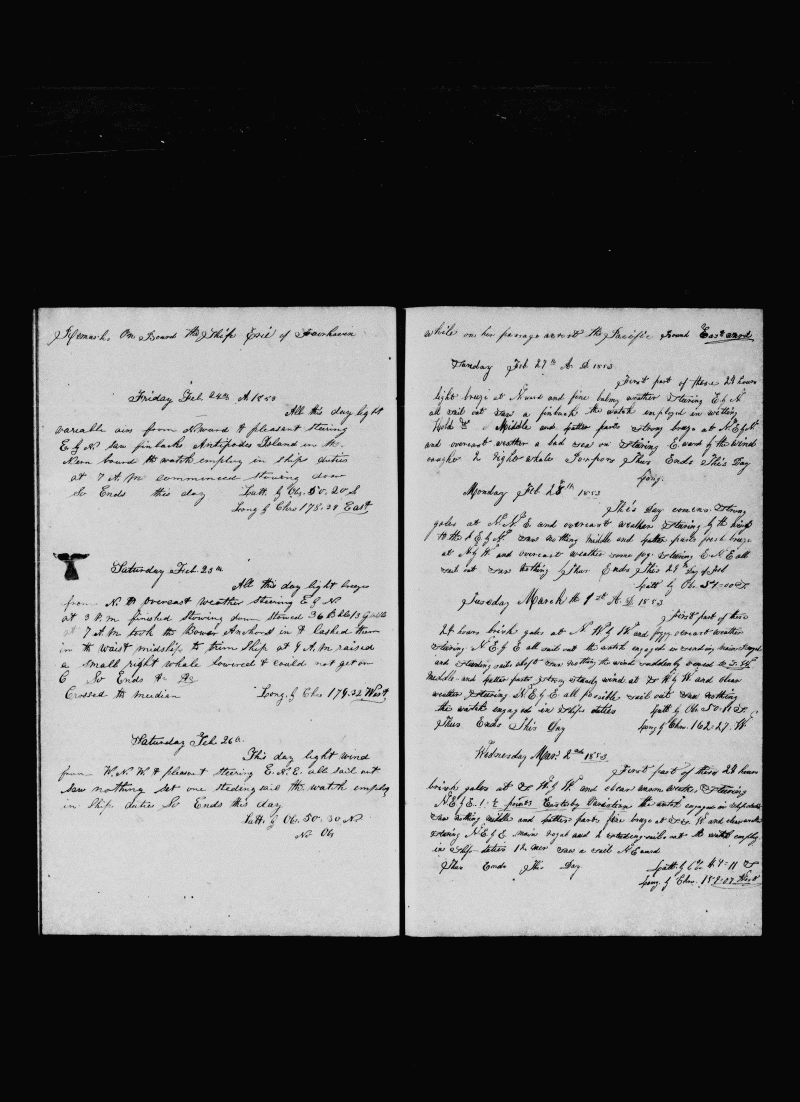 Remarks On Board the Ship Erie of Fairhaven
Friday Feb. 24th A 1853
All this day light
variable airs from N. ward & pleasant steering
E by N. saw finbacks Antipodes Island in the
N ern bound the watch employ in ship duties
at 7 A.M commenced stowing down
So Ends this day Latt. by Ob. 50.20 S
Long by Chro 178.28 East
Saturday Feb. 25th
All this day light breezes
from N. to overcast weather steering E by N
at 3 P.m finished stowing down stowed 36 Bbls 13 Galls
at 7 A.M took the Bower Anchors in & lashed them
in the waist midship to trim Ship at 9 A.M raised
a small right whale lowered & could not get on
So Ends &c &c
Crossed the meridian Long. by Chro 179.22 West
Saturday Feb 26th
This day light wind
from W.N.W & pleasant steering E.N.E. all sail out
Saw nothing set one studing sail the watch employ
in Ship duties So Ends this day
Latt. by Ob. 50.30
No Ob
while on her passage across the Pacific bound Eastward
Sunday Feb 27th A. D 1853
First part of these 24 hours
light breeze at N ward and fine balmy weather steering E by N
all sail out saw a finback the watch employed in wetting
Hold & Middle and latter parts strong breeze at N.E by N
and overcast weather a bad sea on steering E ward by the wind
caught 2 right whale Porpoises Thus Ends This Day
Long.
Monday Feb 28th 1853
This Day comens strong
gales at N.N.E and overcast weather steering by the wind
to the E by N. saw nothing middle and latter parts fresh breeze
at N by W and overcast weather some fog steering E N E all
sail out saw nothing Thus Ends This 28th day of Feb
Latt by Ob 51=00 S
Tuesday March the 1st A. D 1853
First part of these
24 hours brisk gales at N. W by W and foggy overcast weather
steering N. E by E all sail out the watch engaged in sending main royal
and studding sails aloft saw nothing the wind suddenly veered to S. W
Middle and latter parts strong steady wind at S W by W and clear
weather steering N E by E all possible sail out saw nothing
the watch engaged in Ships duties Latt by Ob 50.11 S
Thus Ends This Day Long by Chro. 162.27. W
Wednesday Mar. 2nd 1853
First part of these 24 hours
brisk gales at S W by W and clear warm weather steering
N E by E. 1 1/2 points Easterly Variation the watch engaged in ship duties
saw nothing middle and latter parts fine breeze at S. S. W and clear weather
steering N E by E main royal and 2 studding sails out the watch employ
in ship duties 12 saw a sail N E ward
Thus Ends This Day Latt by Ob 49=11 S
Long. by Chro. 159.07 West